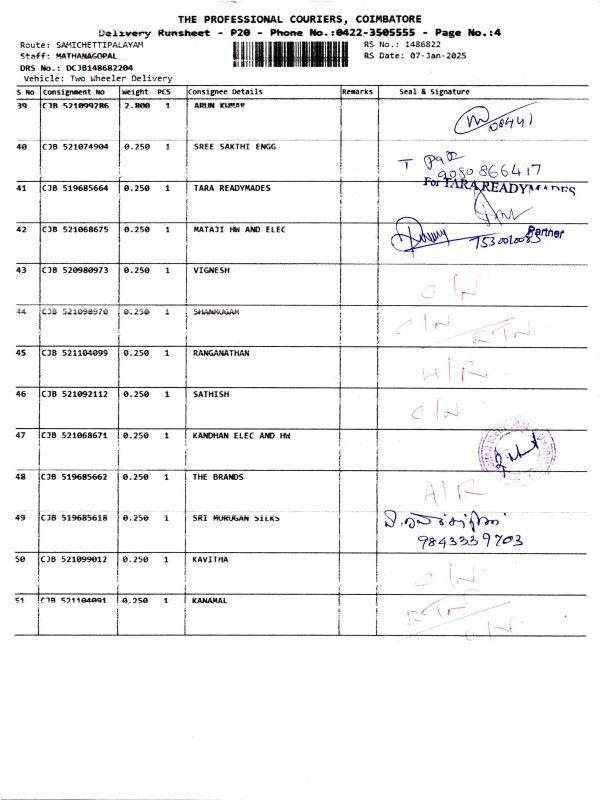 THE PROFESSIONAL COURIERS, COIMBATORE
Delivery Runsheet - P20 - Phone No.:0422-3505555 - Page No.:4
Route: SAMICHETTIPALAYAM
RS No.: 1486822
Staff: MATHANAGOPAL
RS Date: 07-Jan-2025
DRS No.: DCJB148682204
Vehicle: Two Wheeler Delivery
S No Consignment No Weight PCS Consignee Details Remarks Seal & Signature
39 CJB 521099286 2.800 1 ARUN KUMAR
40 CJB 521074904 0.250 1 SREE SAKTHI ENGG
9080866417
41 CJB 519685664 0.250 1 TARA READYMADES For TARA READYMADES
Partner
42 CJB 521068675 0.250 1 MATAJI HW AND ELEC
43 CJB 520980973 0.250 1 VIGNESH C/N
44 CJB 521098970 0.250 1 SHANMUGAM C/N RTN
45 CJB 521104099 0.250 1 RANGANATHAN
46 CJB 521092112 0.250 1 SATHISH C/N
47 CJB 521068671 0.250 1 KANDHAN ELEC AND HW
48 CJB 519685662 0.250 1 THE BRANDS A/R
49 CJB 519685618 0.250 1 SRI MURUGAN SILKS
9843339703
50 CJB 521099012 0.250 1 KAVITHA C/N
51 CJB 521104091 0.250 1 KANAMAL RTN
C/N